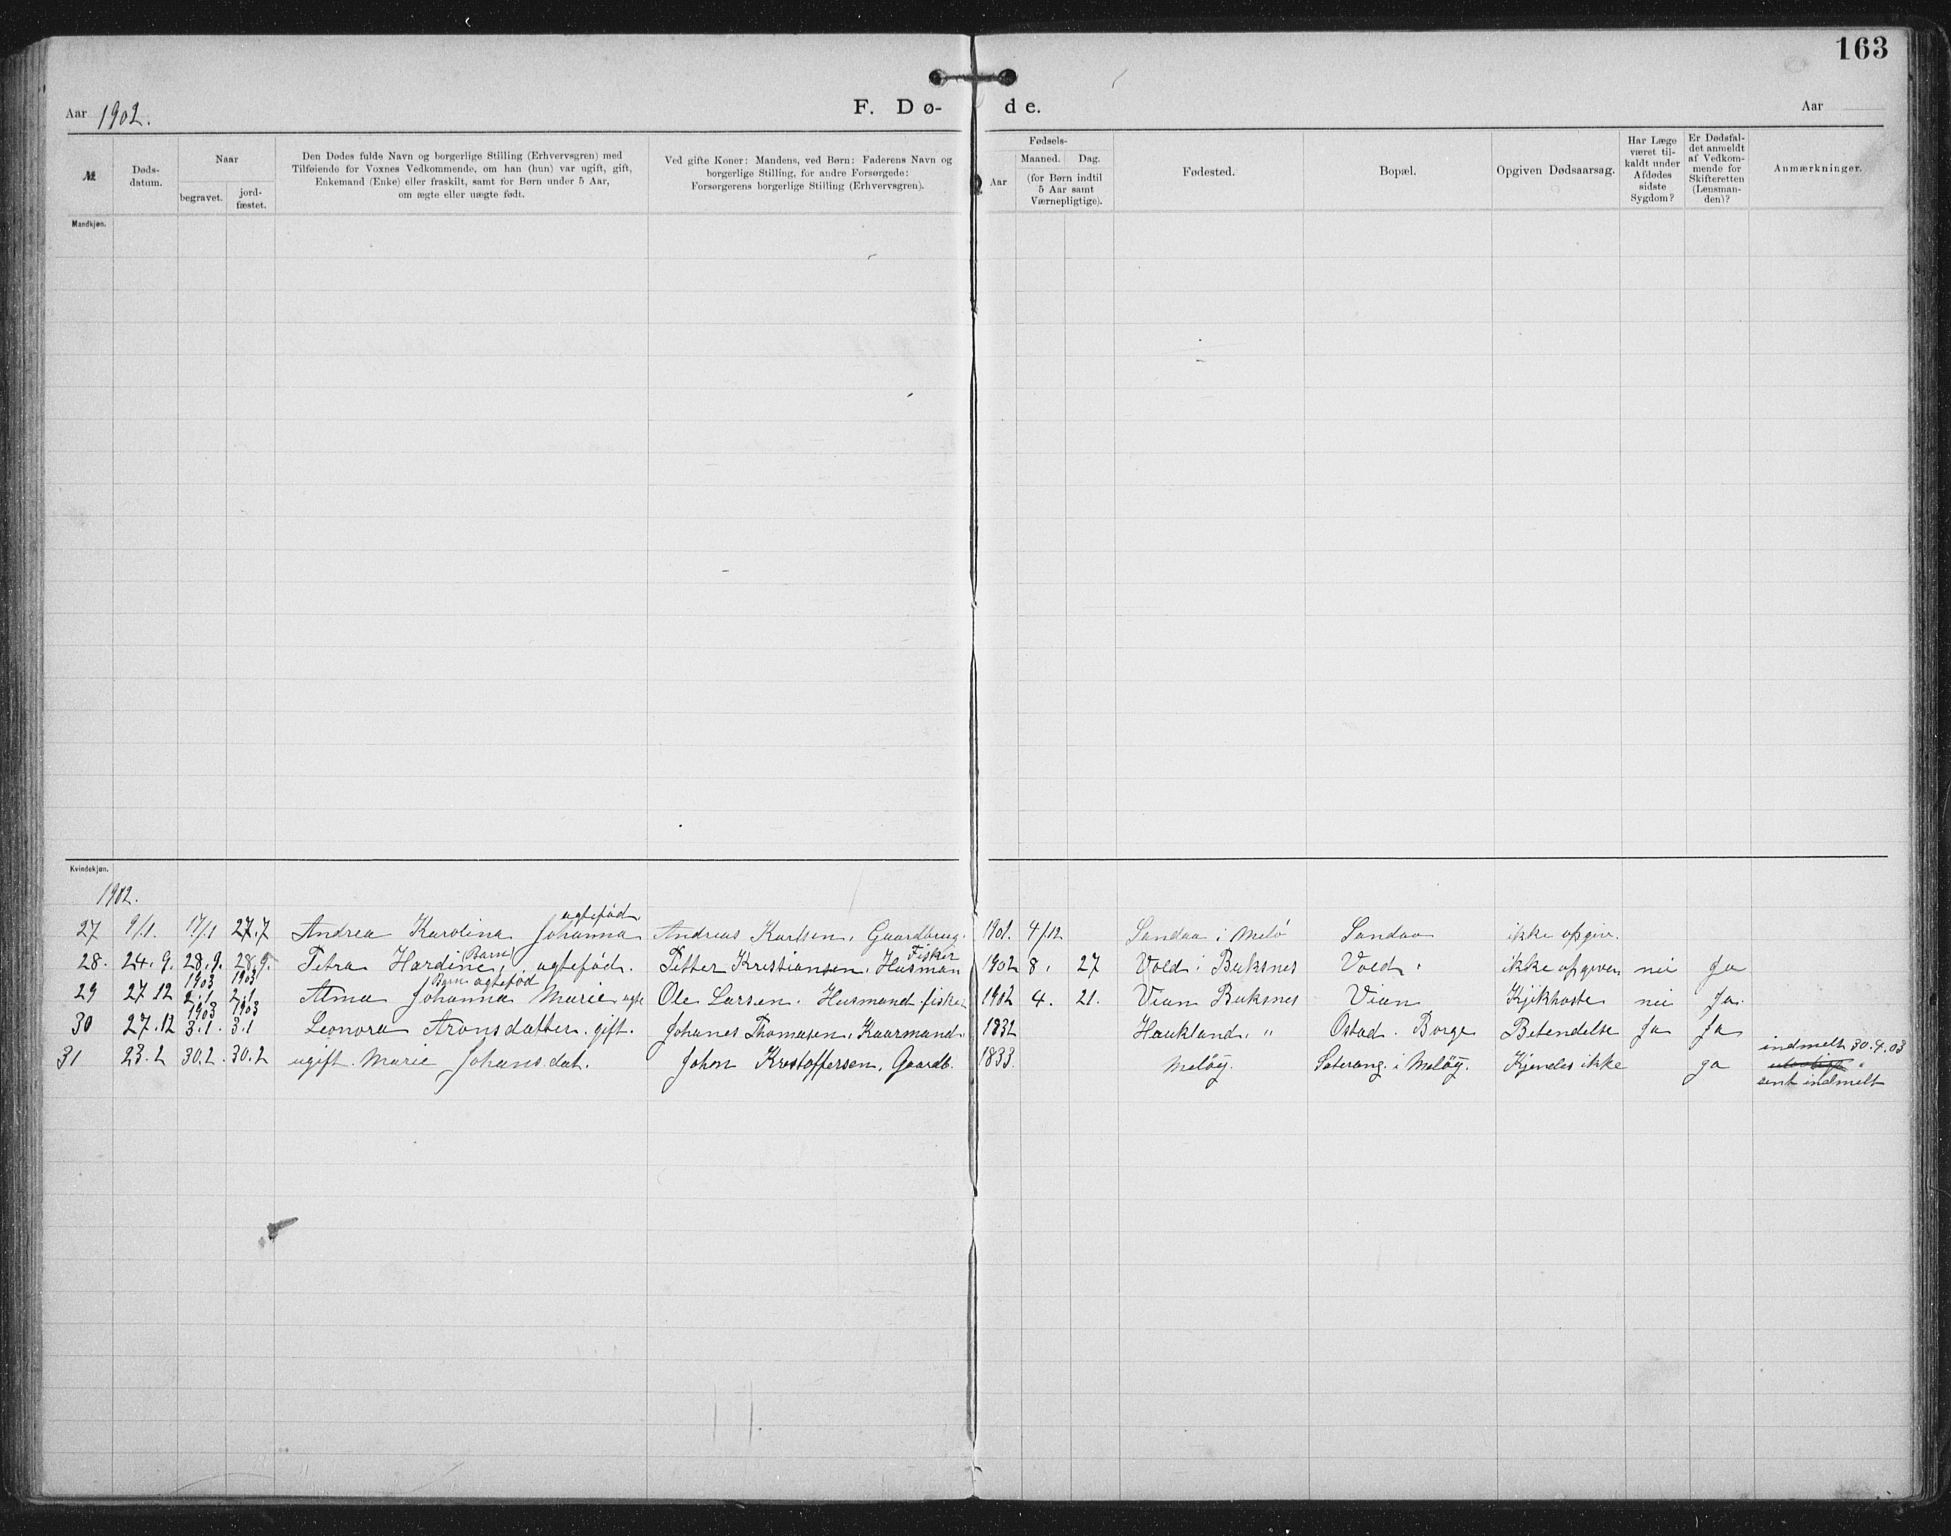 163
Aar 1902. F. Dø- de. Aar
№ Døds-datum. Naar begravet. jord-fæstet. Den Dødes fulde Navn og borgerlige Stilling (Erhvervsgren) med Tilføiende for Voxnes Vedkommende, om han (hun) var ugift, gift, Enkemand (Enke) eller fraskilt, samt for Børn under 5 Aar, om ægte eller uægte født. Ved gifte Koner: Mandens, ved Børn: Faderens Navn og borgerlige Stilling, for andre Forsørgede: Forsørgerens borgerlige Stilling (Erhvervsgren). Fødsels- Aar Maaned. Dag. (for Børn indtil 5 Aar samt Værnepligtige). Fødested. Bopæl. Opgiven Dødsaarsag. Har Læge været til-kaldt under Afdødes sidste Sygdom? Er Dødsfal-det anmeldt af Vedkom-mende for Skifteretten (Lensman-den)? Anmærkninger.
Mandkjøn.
Kvindekjøn.
1902.
27 9/1. 17/1 27.7 Andrea Karolina Johanna ægtefød. Andreas Karlsen, Gaardbrug. 1901. 4/12 Sandaa i Melö Sandaa ikke opgiv.
28. 24.9. 28.9. 28.9. Petra Hardine, Barn, ægtefød. Petter Kristiansen, Husman Fisker 1902 8. 27 Vold i Buksnes Vold. ikke opgiven nei Ja
29 27.12 1903 2.1 1903 2.1 Alma Johanna Marie Barn ægtefød ægte Ole Larsen. Husmand fisker 1902 4. 21. Vian Buksnes Vian Kjikhoste nei Ja.
30 27.12 1903 3.1. 1903 3.1 Leonora Aronsdatter. gift. Johanes Thomasen, Kaarmand. 1832 Haukland. " Ostad. Borge Betendelse Ja Ja
31 23.2 30.2. 30.2 ugift. Marie Johansdat. Johan Krestoffersen, Gaardb. 1833. Meløy. i Meløy. Kjendes ikke ja indmelt 30.4.03
sent indmelt